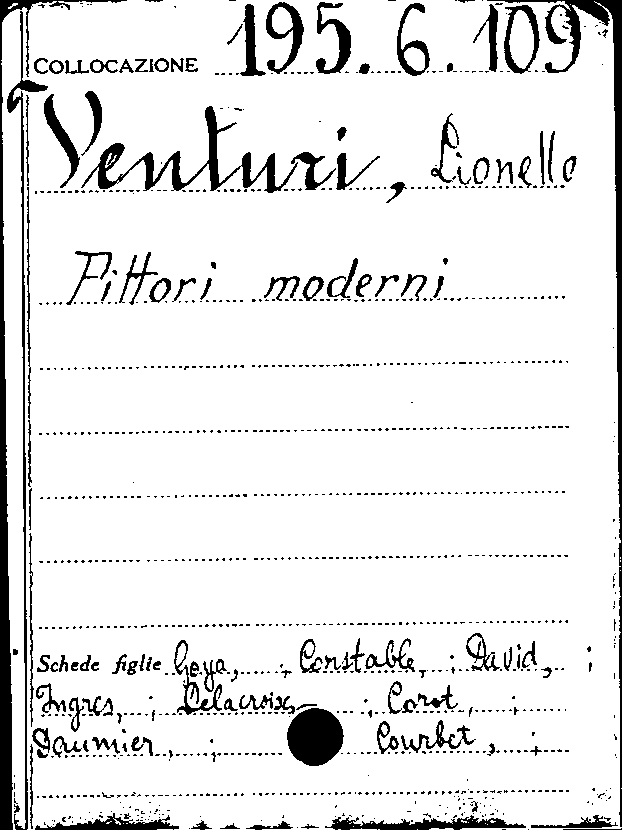 COLLOCAZIONE 195.6.109
Venturi, Lionello
Pittori moderni
Schede figlie Goya, ; Constable, ; David, ;
Ingres, ; Delacroix, ; Corot, ;
Daumier, ; Courbet, ;